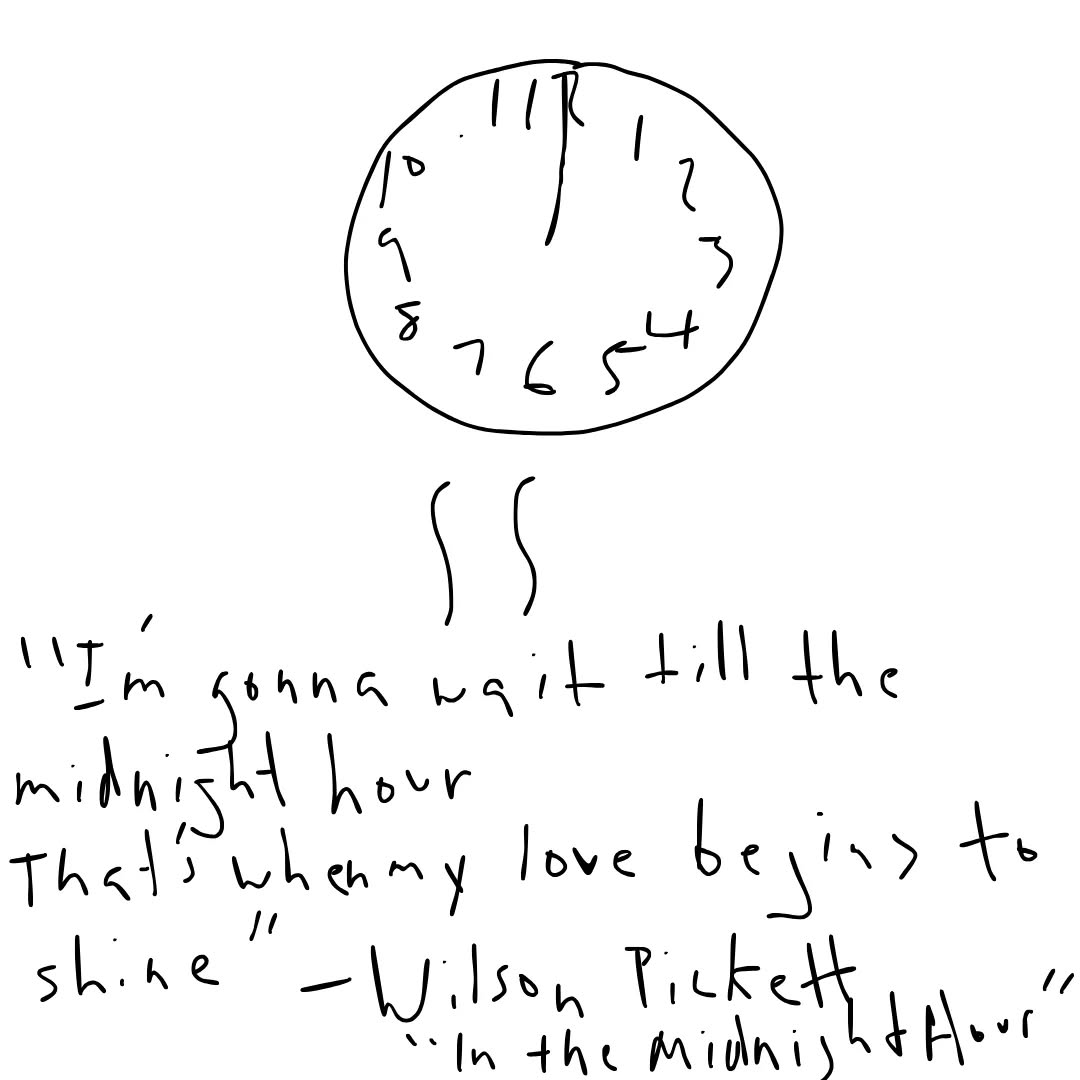 11 12 1
10 2
9 3
8 4
7 6 5
"I'm gonna wait till the
midnight hour
That's when my love begins to
shine" – Wilson Pickett
"In the Midnight Hour"